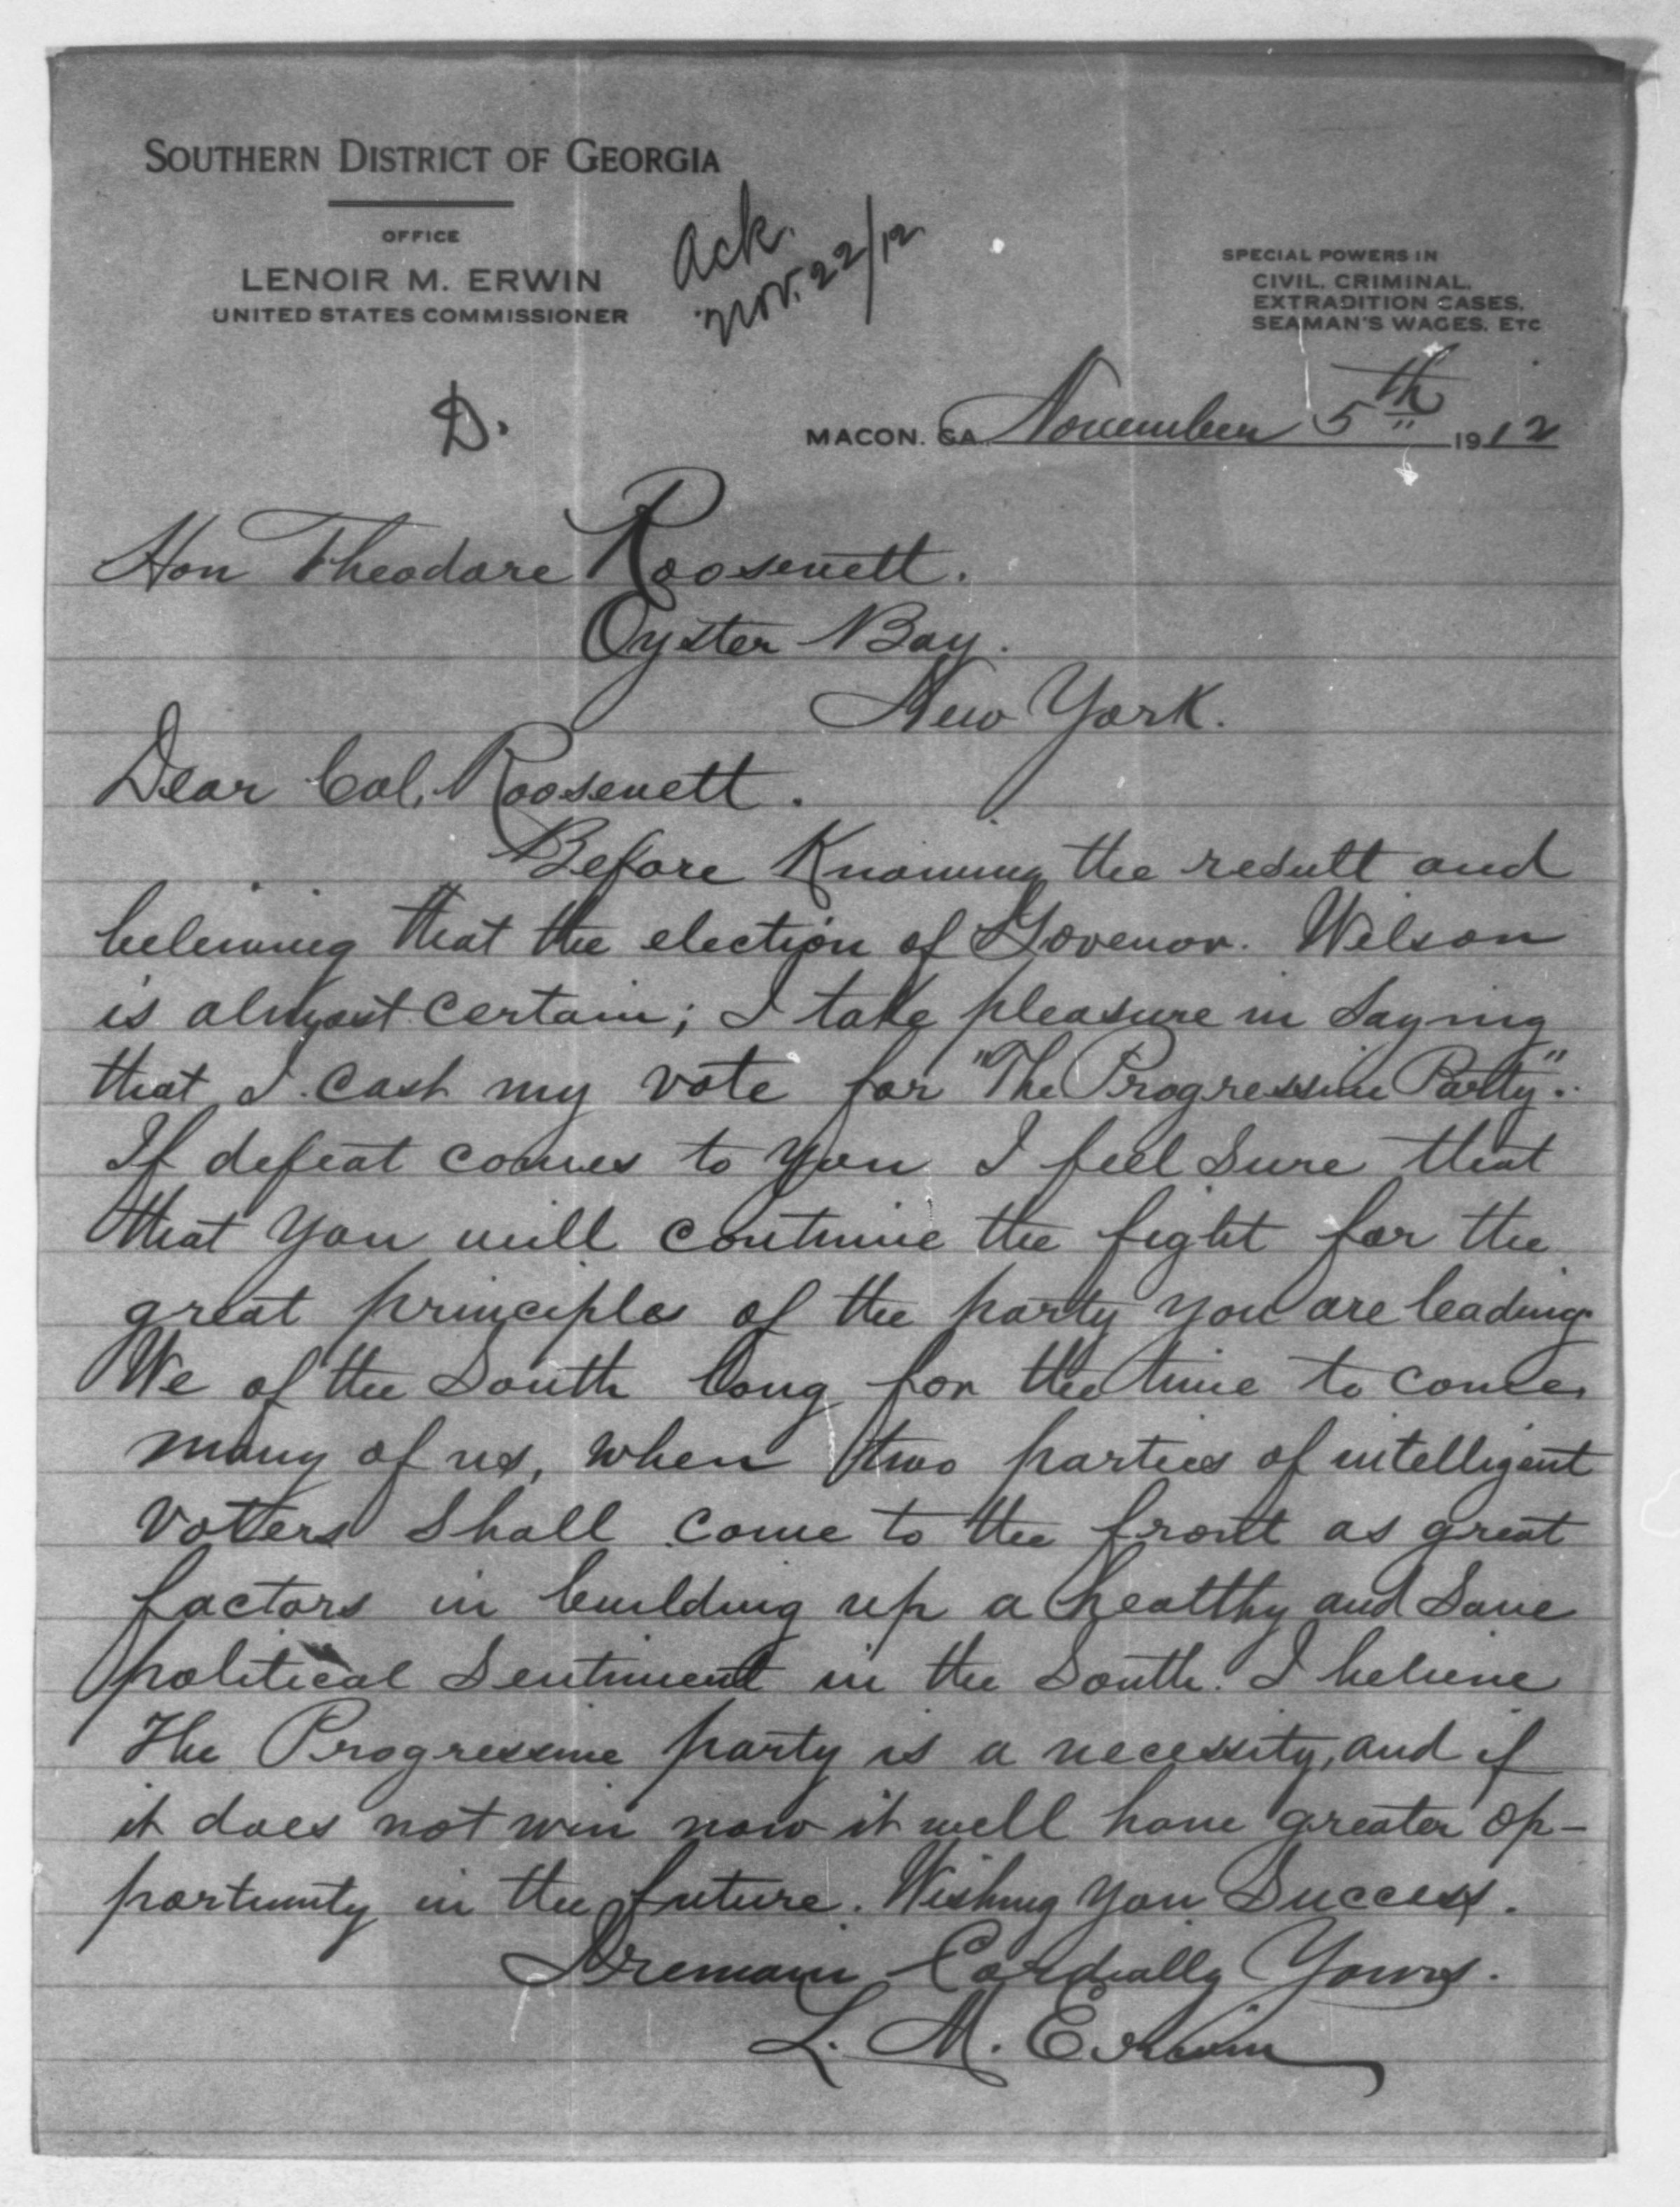 SOUTHERN DISTRICT OF GEORGIA
OFFICE
LENOIR M. ERWIN
UNITED STATES COMMISSIONER
Ack.
Nov. 22/12
SPECIAL POWERS IN
CIVIL, CRIMINAL,
EXTRADITION CASES,
SEAMAN'S WAGES, ETC
D.
MACON, GA. November 5th 1912
Hon Theodore Roosevelt.
Oyster Bay.
New York.
Dear Col. Roosevelt.
Before Knowing the result and
believing that the election of Govenor. Wilson
is almost certain; I take pleasure in saying
that I cast my vote for "The Progressive Party".
If defeat comes to you I feel sure that
that you will continue the fight for the
great principles of the party you are leading.
We of the South long for the time to come,
many of us, when two parties of intelligent
voters shall come to the front as great
factors in building up a healthy and sane
political sentiment in the South. I believe
The Progressive party is a necessity, and if
it does not win now it will have greater op-
portunity in the future. Wishing you success.
I remain Cordially Yours.
L. M. Erwin